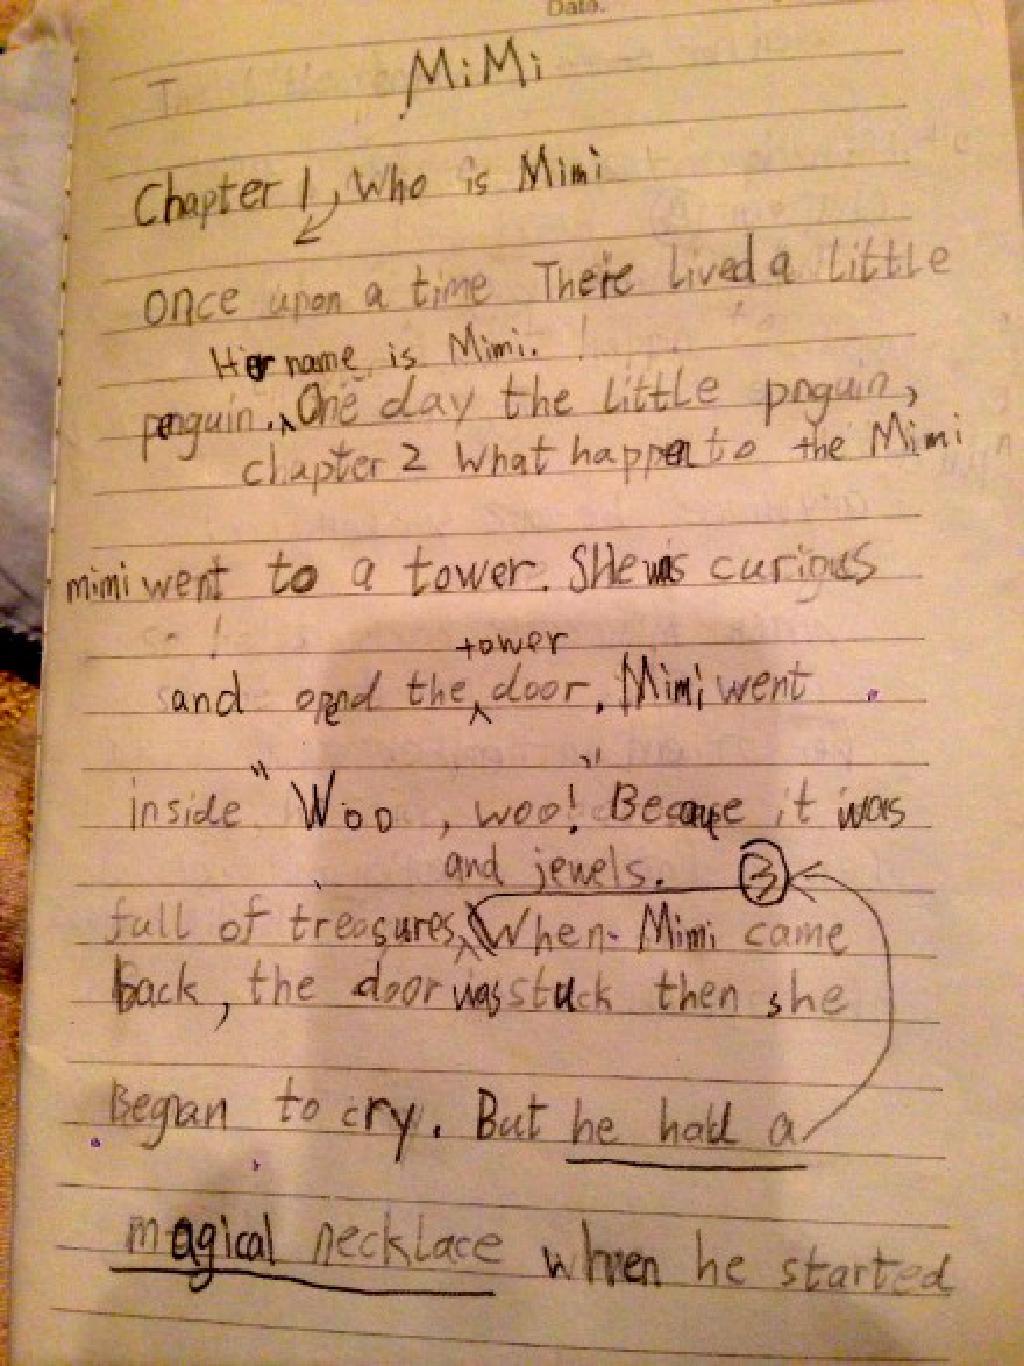 Date.
MiMi
Chapter 1, Who is Mimi
once upon a time There lived a little
Her name is Mimi.
penguin. One day the little pnguin,
chapter 2 What happen to the Mimi
mimi went to a tower. SHe was curigus
tower
and opend the door. Mimi went
inside "Woo, woo!" Becaue it was
and jewels. 3
full of treasures, When Mimi came
Back, the door was stuck then she
Began to cry. But he had a
magical necklace when he started